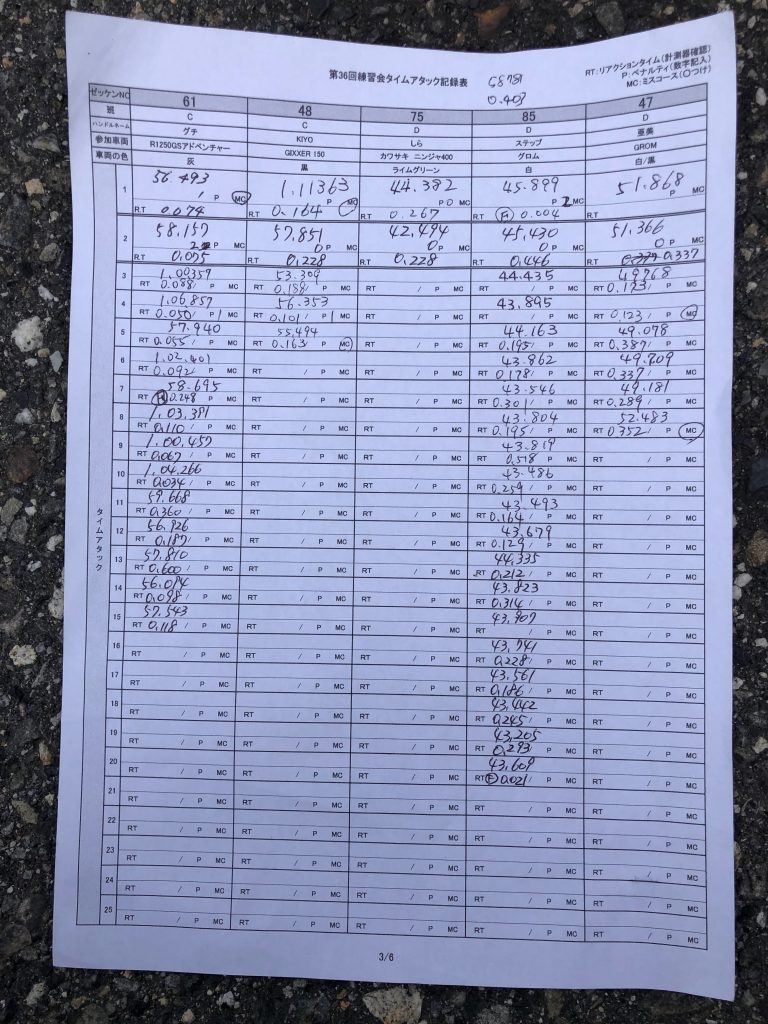 第36回練習会タイムアタック記録表
0.403
RT:リアクションタイム(計測器確認)
P:ペナルティ(数字記入)
MC:ミスコース(○つけ)
ゼッケンNO 61 48 75 85 47
班 C C D D D
ハンドルネーム グチ KIYO しら ステップ 亜美
参加車両 R1250GSアドベンチャー GIXXER 150 カワサキ ニンジャ400 グロム GROM
車両の色 灰 黒 ライムグリーン 白 白/黒
タイムアタック
1 56.493 1.11363 44.382 45.899 51.868
/ P MC P MC P 0 MC P 2 MC P MC
R.T 0.074 R.T 0.164 R.T 0.267 R.T F 0.004 R.T
2 58.157 57.851 42.494 45.430 51.366
P MC 0 P MC 0 P MC 0 P MC 0 P MC
R.T 0.075 R.T 0.228 R.T 0.228 R.T 0.446 R.T 0.337
3 1.00357 53.309 44.435 49.768
RT 0.088 / P MC RT 0.188 / P MC RT / P MC RT / P MC RT 0.173 / P MC
4 1.06.857 56.353 43.895
RT 0.050 / P 1 MC RT 0.101 / P 1 MC RT / P MC RT / P MC RT 0.123 / P MC
5 57.940 55.494 44.163 49.078
RT 0.055 / P MC RT 0.163 / P MC RT / P MC RT 0.195 / P MC RT 0.387 / P MC
6 1.02.401 43.862 49.209
RT 0.092 / P MC RT / P MC RT / P MC RT 0.178 / P MC RT 0.337 / P MC
7 58.695 43.546 49.181
RT F 0.248 / P MC RT / P MC RT / P MC RT 0.301 / P MC RT 0.289 / P MC
8 1.03.391 43.804 52.483
RT 0.110 / P MC RT / P MC RT / P MC RT 0.195 / P MC RT 0.352 / P MC
9 1.00.457 43.819
RT 0.067 / P MC RT / P MC RT / P MC RT 0.518 / P MC RT / P MC
10 1.04.266 43.486
RT 0.034 / P MC RT / P MC RT / P MC RT 0.259 / P MC RT / P MC
11 59.668 43.493
RT 0.360 / P MC RT / P MC RT / P MC RT 0.164 / P MC RT / P MC
12 56.926 43.679
RT 0.187 / P MC RT / P MC RT / P MC RT 0.129 / P MC RT / P MC
13 57.810 44.335
RT 0.600 / P MC RT / P MC RT / P MC RT 0.212 / P MC RT / P MC
14 56.094 43.823
RT 0.098 / P MC RT / P MC RT / P MC RT 0.314 / P MC RT / P MC
15 57.543 43.907
RT 0.118 / P MC RT / P MC RT / P MC RT / P MC RT / P MC
16 43.741
RT / P MC RT / P MC RT / P MC RT 0.228 / P MC RT / P MC
17 43.561
RT / P MC RT / P MC RT / P MC RT 0.186 / P MC RT / P MC
18 43.442
RT / P MC RT / P MC RT / P MC RT 0.245 / P MC RT / P MC
19 43.205
RT / P MC RT / P MC RT / P MC RT 0.293 / P MC RT / P MC
20 43.609
RT / P MC RT / P MC RT / P MC RT F 0.021 / P MC RT / P MC
21
RT / P MC RT / P MC RT / P MC RT / P MC RT / P MC
22
RT / P MC RT / P MC RT / P MC RT / P MC RT / P MC
23
RT / P MC RT / P MC RT / P MC RT / P MC RT / P MC
24
RT / P MC RT / P MC RT / P MC RT / P MC RT / P MC
25
RT / P MC RT / P MC RT / P MC RT / P MC RT / P MC
3/6